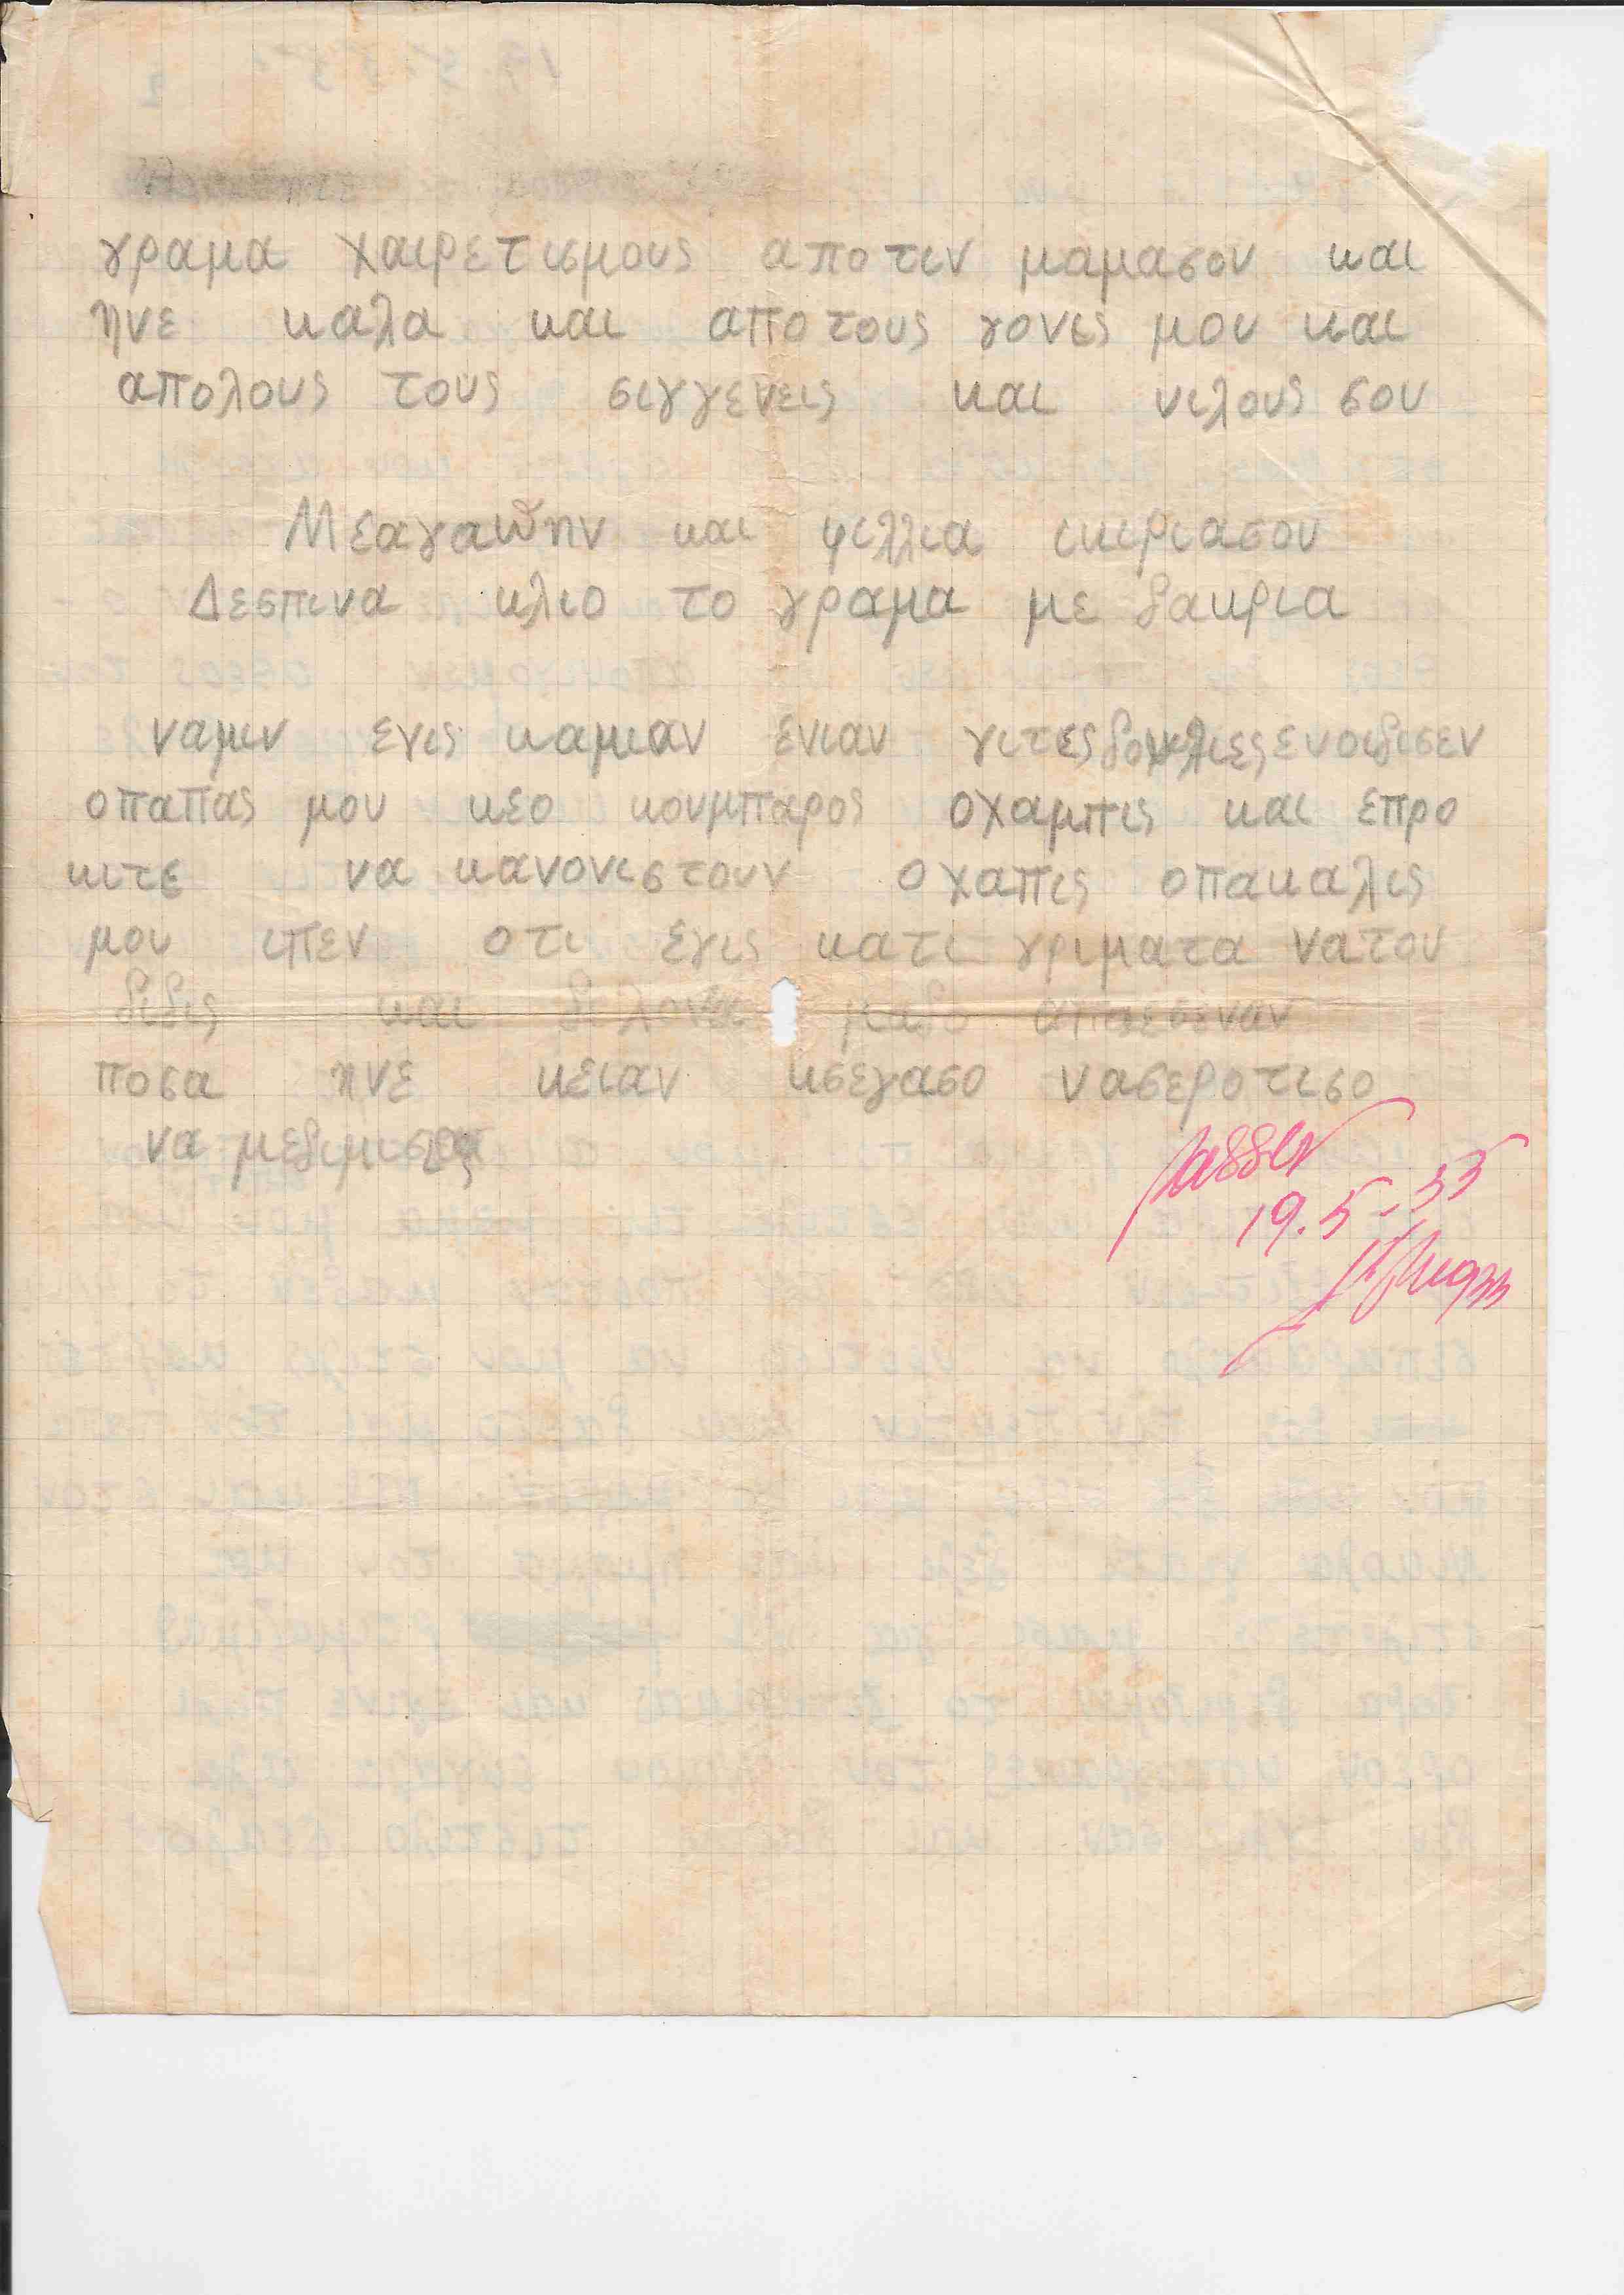 γραμα χαιρετισμους απο τιν μαμασου και
ηνε καλα και απο τους γονις μου και
απολους τους σιγγενεις και νιλους σου
Μεαγαπην και φιλλια ικιριασου
Δεσπινα κλιο το γραμα με δακρια
ναμιν εγις καμιαν ενιαν γιτες δουλιες ενοιδισεν
οπαπας μου κεο κουμπαρος οχαμπις και επρο
κιτε να κανονιστουν οχαπις οπακαλις
μου ιπεν οτι εγις κατι γριματα νατου
διδις και
ποσα ηνε κειαν κσεγασο νασεροτισο
να μεδιμισεις
Passed
19.5-55